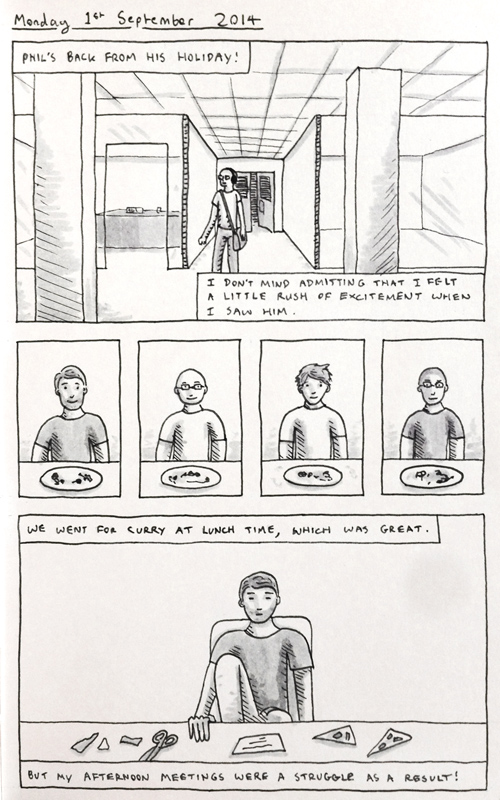 Monday 1st September 2014
PHIL'S BACK FROM HIS HOLIDAY!
I DON'T MIND ADMITTING THAT I FELT
A LITTLE RUSH OF EXCITEMENT WHEN
I SAW HIM.
WE WENT FOR CURRY AT LUNCH TIME, WHICH WAS GREAT.
BUT MY AFTERNOON MEETINGS WERE A STRUGGLE AS A RESULT!